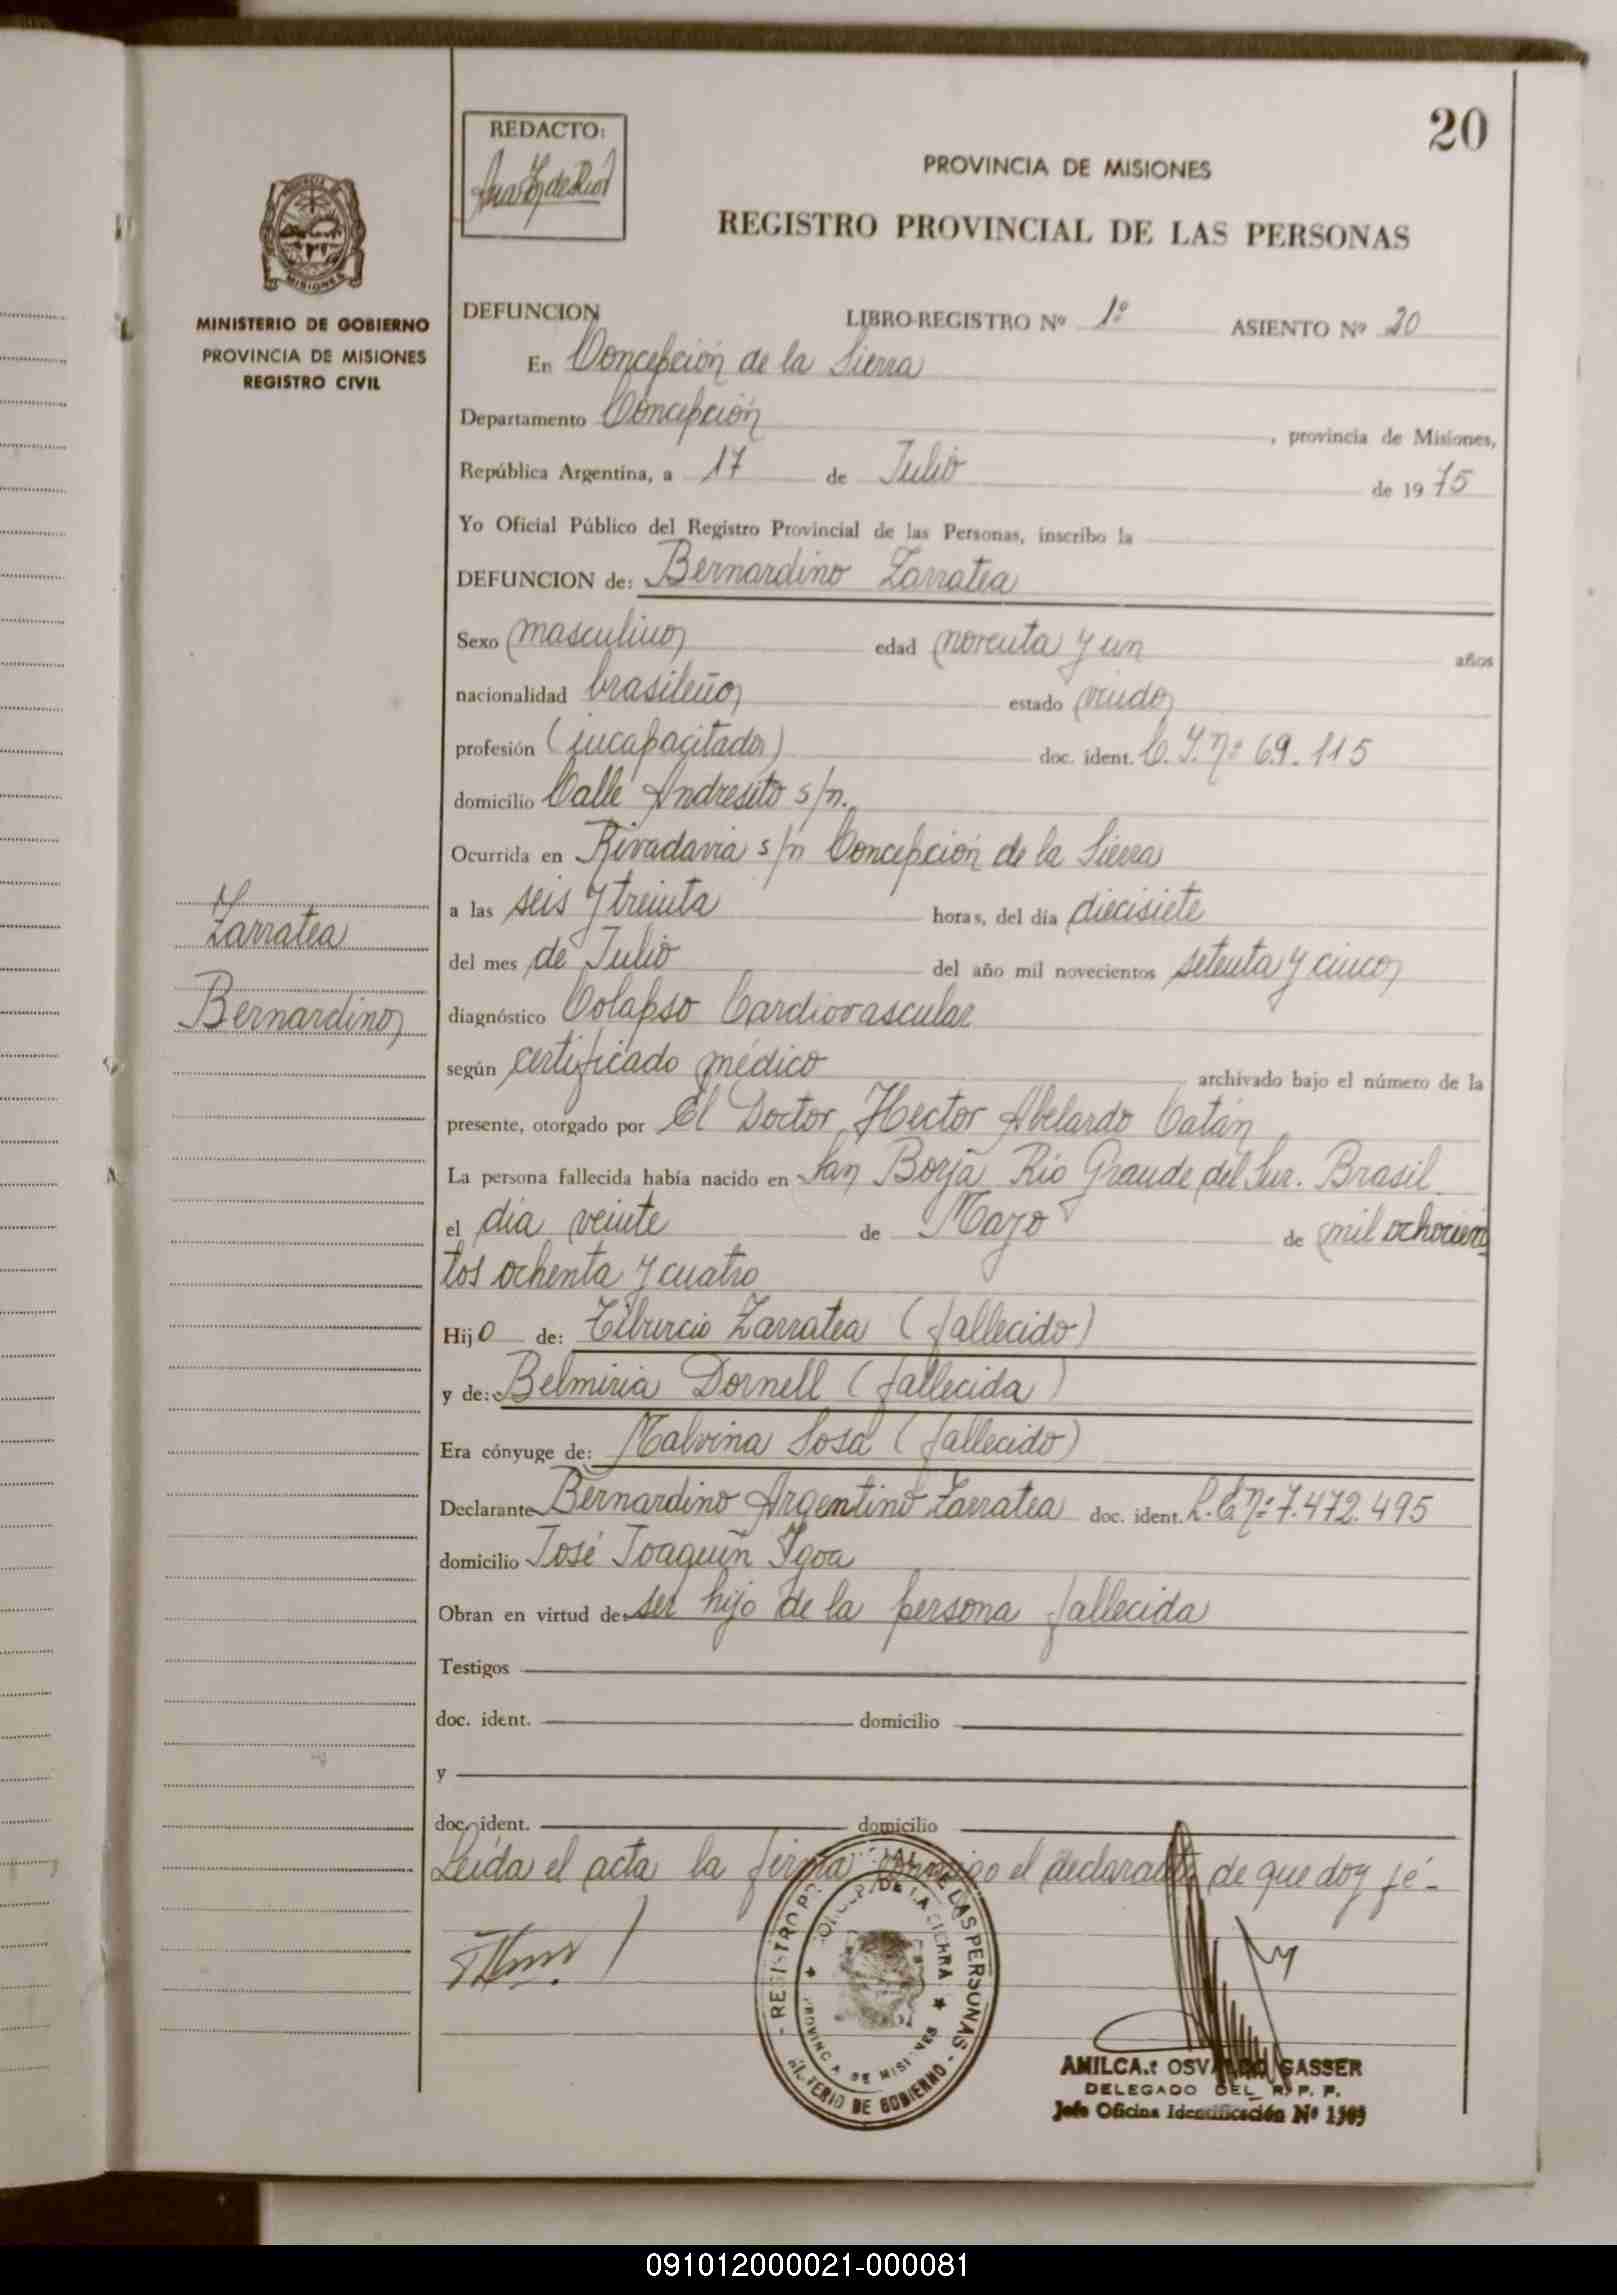 20
REDACTO:
PROVINCIA DE MISIONES
REGISTRO PROVINCIAL DE LAS PERSONAS
MISIONES
MINISTERIO DE GOBIERNO
PROVINCIA DE MISIONES
REGISTRO CIVIL
DEFUNCION LIBRO-REGISTRO Nº 1º ASIENTO Nº 20
En Concepción de la Sierra
Departamento Concepción, provincia de Misiones,
República Argentina, a 17 de Julio de 1975
Yo Oficial Público del Registro Provincial de las Personas, inscribo la
DEFUNCION de: Bernardino Zarratea
Sexo masculino edad noventa y un años
nacionalidad brasileño estado viudo
profesión (incapacitado) doc. ident. C. I. nº 69.115
domicilio Calle Andresito s/n.
Ocurrida en Rivadavia s/n Concepción de la Sierra
a las seis y treinta horas, del día diecisiete
del mes de Julio del año mil novecientos setenta y cinco
Zarratea
Bernardino
diagnóstico Colapso Cardiovascular
según certificado médico archivado bajo el número de la
presente, otorgado por El Doctor Hector Abelardo Catán
La persona fallecida había nacido en San Borja Río Grande del Sur. Brasil
el día veinte de Mayo de mil ochocien
tos ochenta y cuatro
Hijo de: Tiburcio Zarratea (fallecido)
y de: Belmiria Dornell (fallecida)
Era cónyuge de: Malvina Sosa (fallecido)
Declarante Bernardino Argentino Zarratea doc. ident. L. E. nº 7.472.495
domicilio José Joaquín Igoa
Obran en virtud de ser hijo de la persona fallecida
Testigos
doc. ident. domicilio
y
doc. ident. domicilio
Leída el acta la firma conmigo el declarante de que doy fé-
REGISTRO DE LAS PERSONAS
PROVINCIA DE MISIONES
DE GOBIERNO
OSVALDO GASSER
DELEGADO DEL R. P. P.
Jefe Oficina Identificación Nº 1505
091012000021-000081